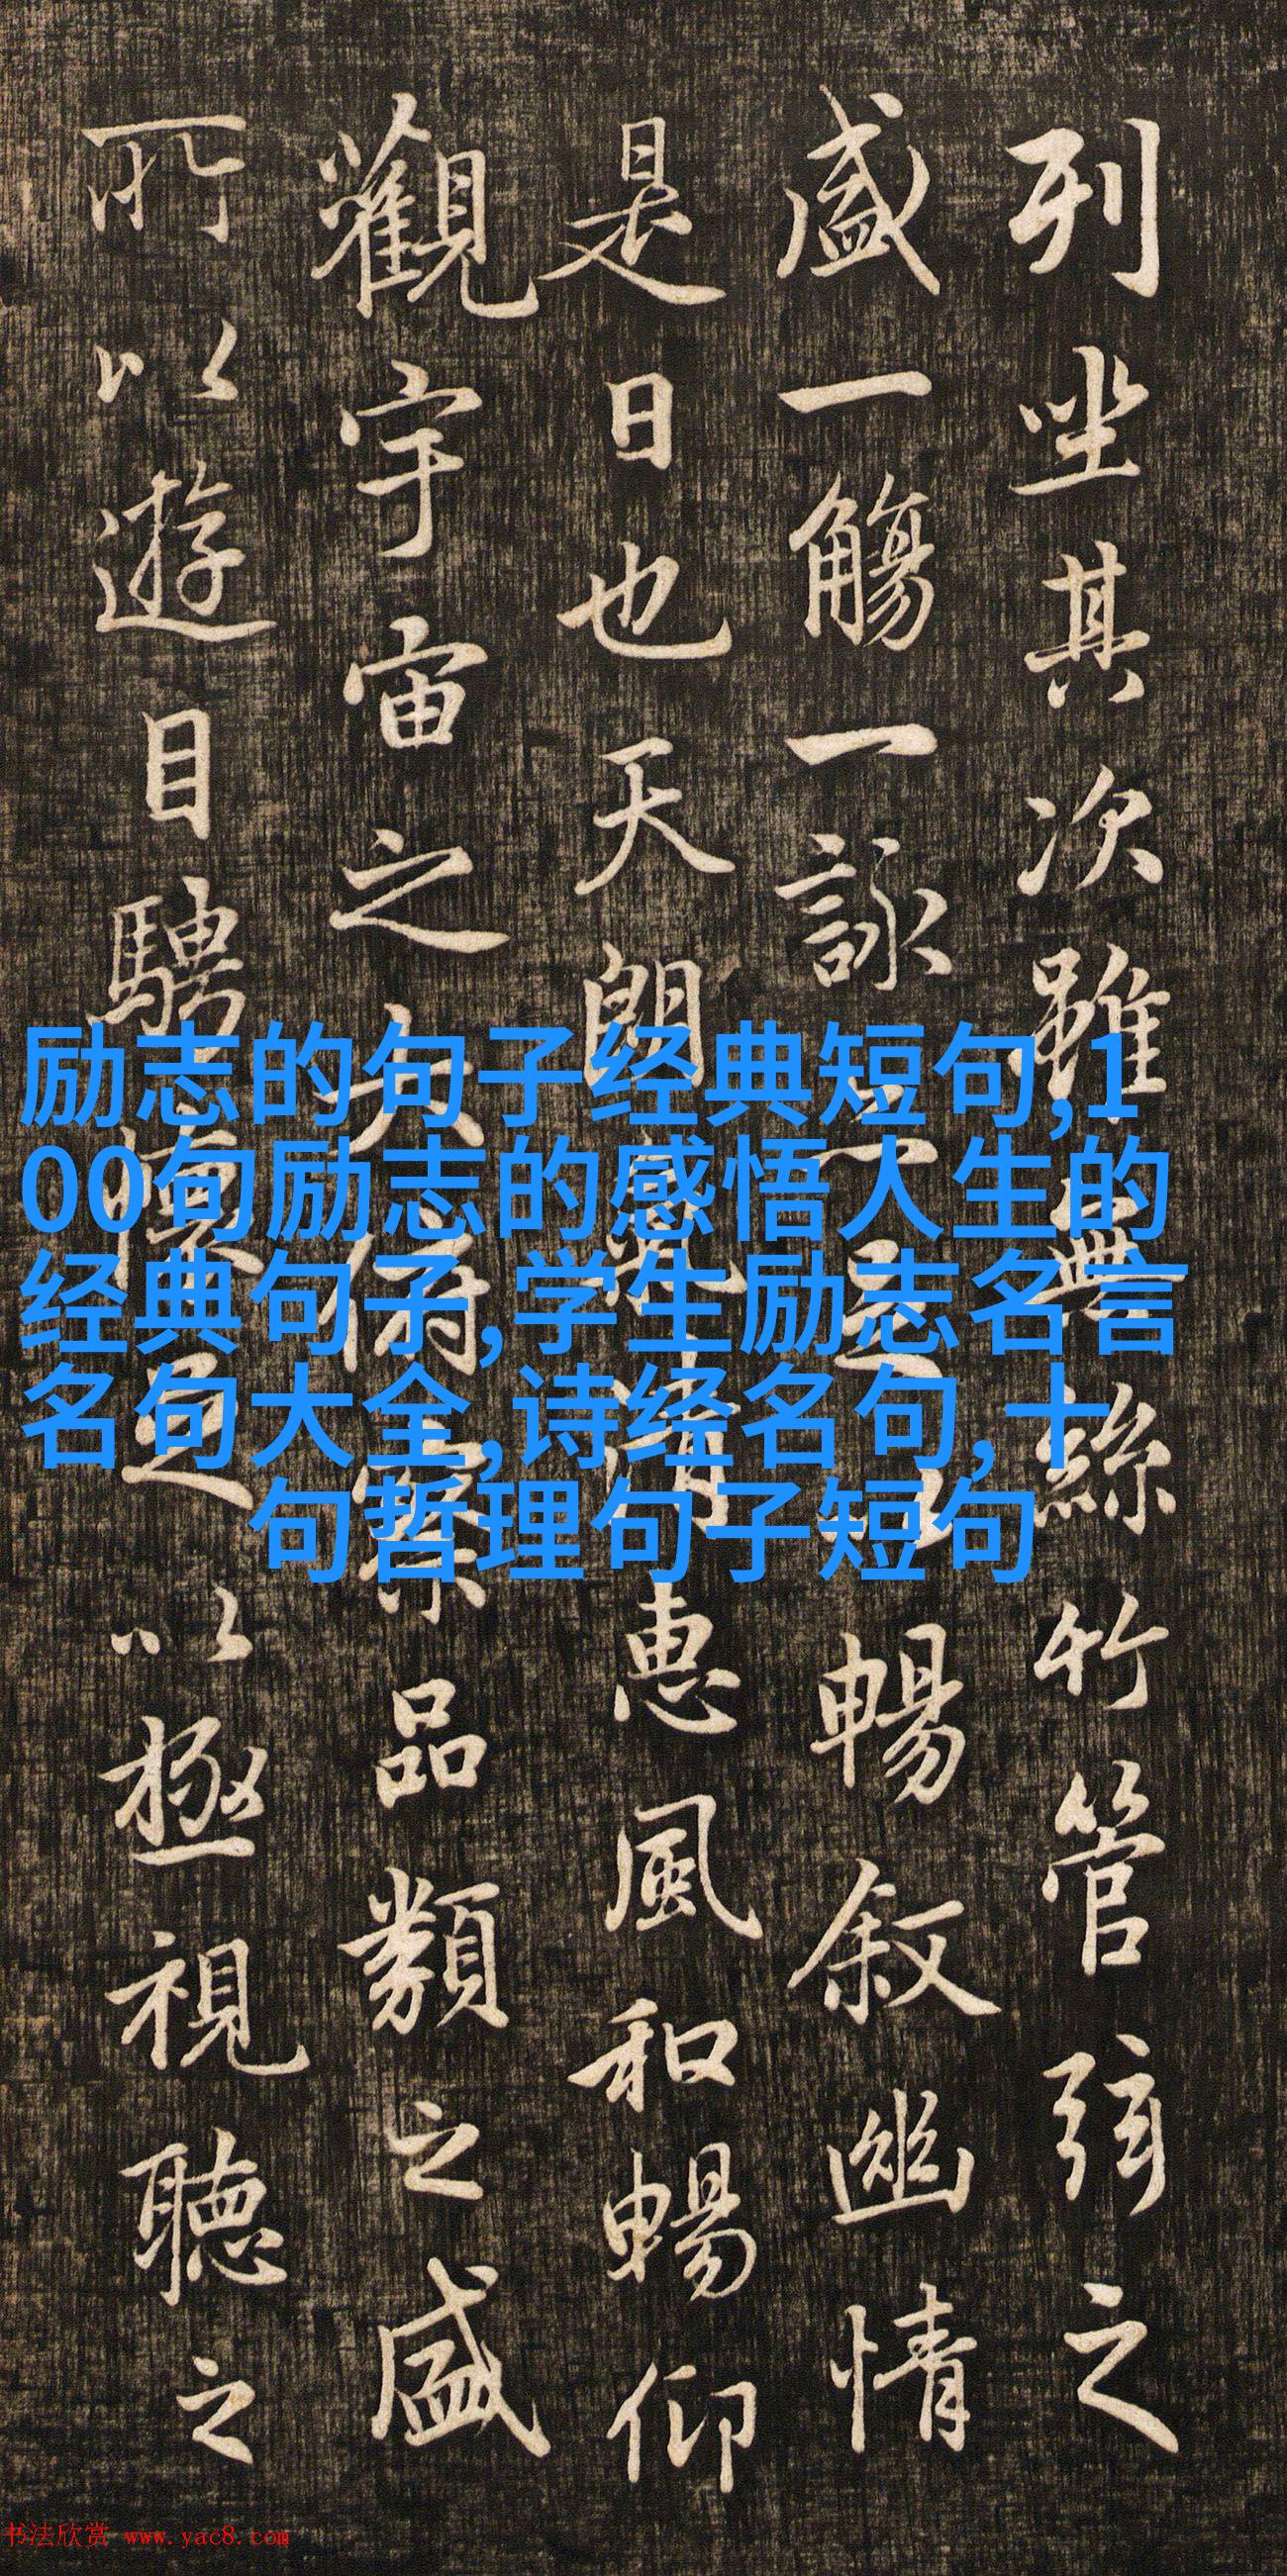 列坐其次雖無絲竹管弦之
盛一觴一詠亦足以暢叙幽情
是日也天朗氣清惠風和暢仰
觀宇宙之大俯察品類之盛
所以遊目騁懷足以極視聽之
励志的句子经典短句,1
00句励志的感悟人生的
经典句子,学生励志名言
名句大全,诗经名句,十
句哲理句子短句
书法欣赏 www.yac8.com